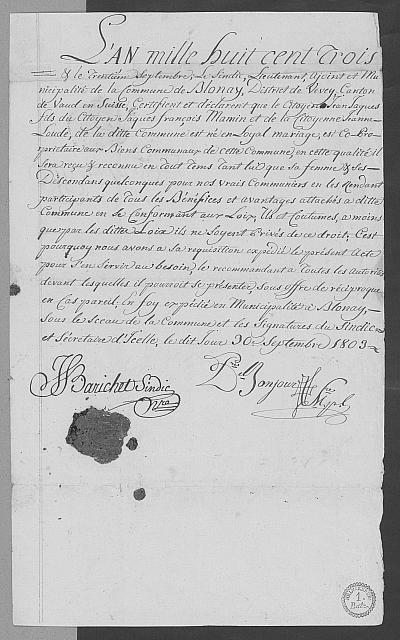 L'AN mille huit cent Trois
& le trentieme Septembre, Le Sindic, Lieutenant, Ajoint et Mu
nicipalité de la Commune de Blonay, District de Vevey, Canton
de Vaud en Suisse, Certifient et déclarent que le Citoyen Jean Jaques
fils du Citoyen Jaques françois Mamin et de la Citoyenne Jeanne
Loude, de la ditte Commune est né en Loyal mariage, est Co-Pro-
prietaire aux Biens Communaux de cette Commune, en cette qualité il
sera reçu & reconnu en tout tems tant lui que sa femme & ses
Descendans quelconques pour nos vrais Communiers en les Rendant
participants de tous les Bénéfices et avantages attachés a ditte
Commune en se Conformant aux Loix, Us et Coutumes, a moins
que par les dittes Loix ils ne soyent Privés de ce droit; C'est
pourquoy nous avons a sa requisition expédié le présent Acte
pour s'en servir au besoin, le recommandant a toutes les autorités
devant lesquelles il pourroit se présenter, sous offre de réciproque
en Cas pareil. En foy expédié en Municipalité a Blonay,
sous le Sceau de la Commune et les Signatures du Sindic
et Sécrétaire d'Icelle, le dit Jour 30e Septembre 1803
Barichet Sindic
Bonjour
1.